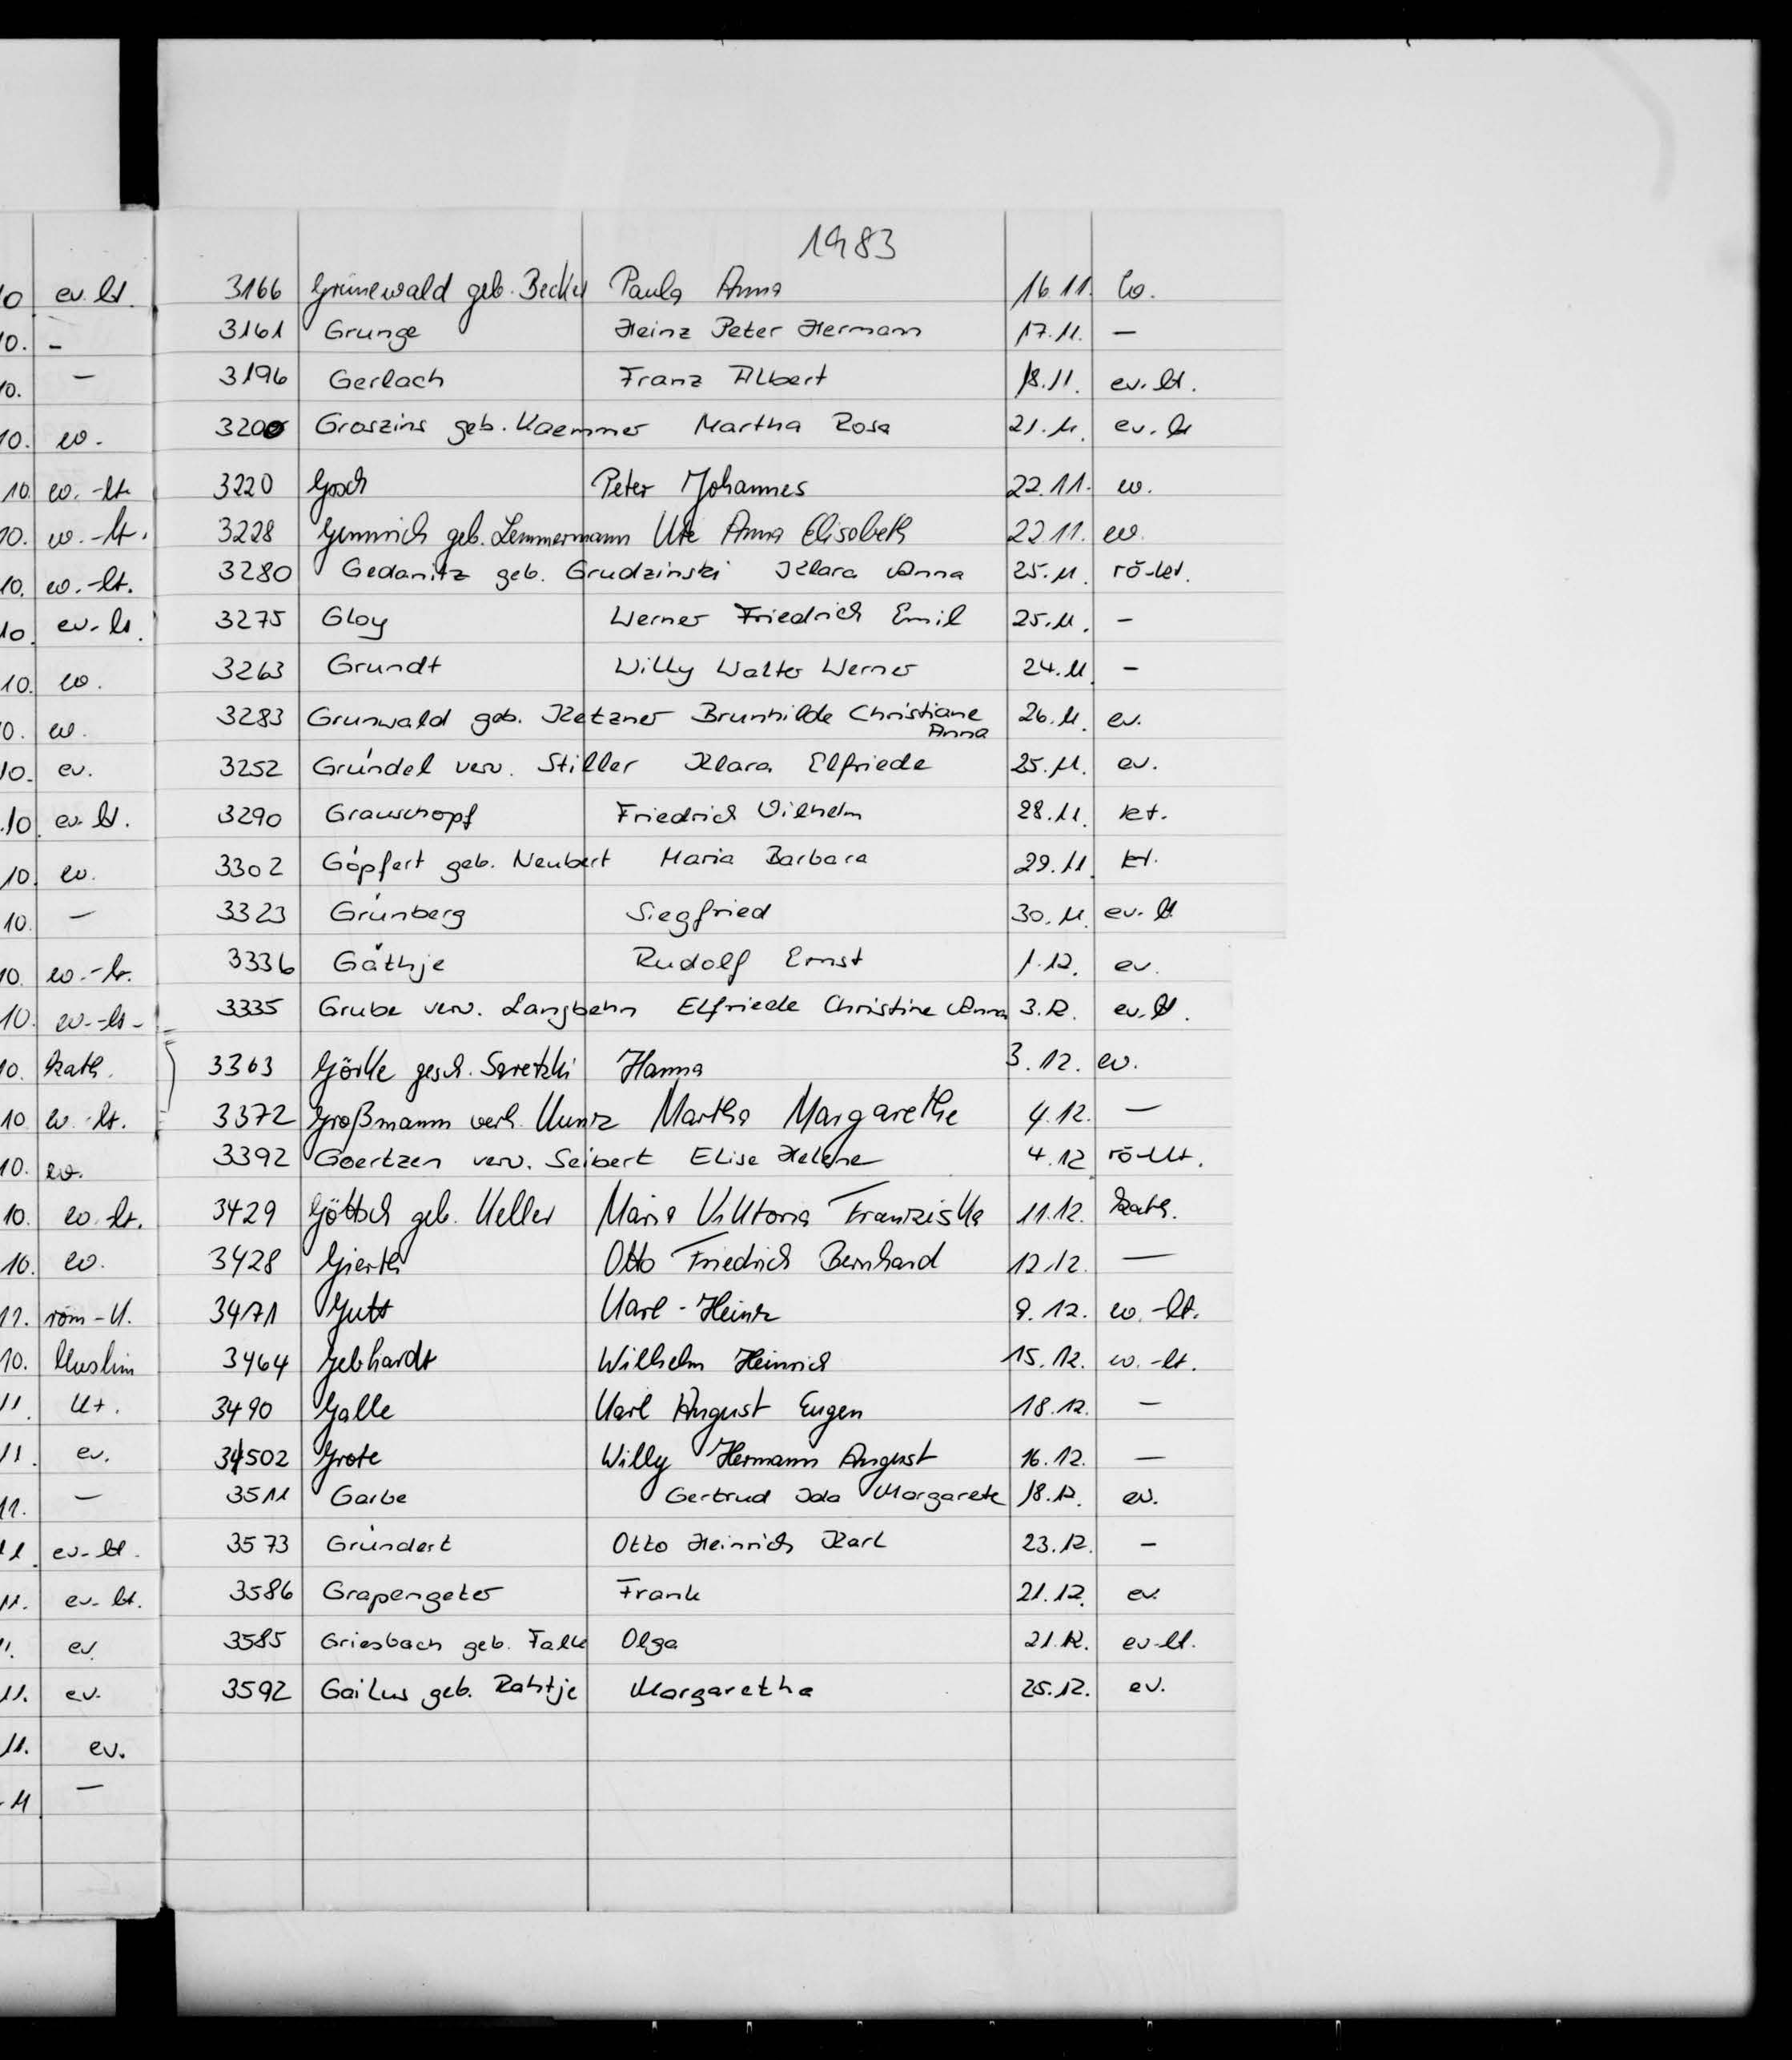 1983
10 ev. lt. 3166 Grünewald geb. Becker Paula Anna 16.11. ev.
10. - 3161 Grunge Heinz Peter Hermann 17.11. —
10. — 3196 Gerlach Franz Albert 18.11. ev. lt.
10. ev. 3200 Groszins geb. Kaemmer Martha Rosa 21.11. ev. lt
10. ev. -lt. 3220 Gosch Peter Johannes 22.11. ev.
10. ev. -lt. 3228 geb. Lemmermann Ute Anna Elisabeth 22.11. ev.
10. ev. -lt. 3280 Gedanitz geb. Grudzinski Klara Anna 25.11. rö-kt.
10. ev. lt. 3275 Gloy Werner Friedrich Emil 25.11. -
10. ev. 3263 Grundt Willy Walter Werner 24.11. -
10. ev. 3283 Grunwald geb. Ketzner Brunhilde Christiane 26.11. ev.
Anna
10. ev. 3252 Gründel verw. Stiller Klara Elfriede 25.11. ev.
10. ev. lt. 3290 Grauschopf Friedrich Wilhelm 28.11. kt.
10. ev. 3302 Göpfert geb. Neubert Maria Barbara 29.11. kt.
10. — 3323 Grünberg Siegfried 30.11. ev. lt
10. ev. -lt. 3336 Gäthje Rudolf Ernst 1.12. ev.
10. ev. -lt- 3335 Grube verw. Langbehn Elfriede Christine Anna 3.12. ev. lt.
10. kath. 3363 Görke gesch. Saretzki Hanna 3.12. ev.
10. ev. lt. 3372 Großmann verh. Kunz Martha Margarethe 4.12. —
10. ev. 3392 Goertzen verw. Seibert Elise Helene 4.12 rö-kt.
10. ev. lt. 3429 Göttsch geb. Keller Maria Viktoria Franziska 11.12. kath.
10. ev. 3428 Gierth Otto Friedrich Bernhard 12.12. —
12. röm-k. 3471 Gutt Karl-Heinz 9.12. ev. -lt.
10. Muslim 3464 Gebhardt Wilhelm Heinrich 15.12. ev. -lt.
11. kt. 3490 Galle Karl August Eugen 18.12. —
11. ev. 3502 Grote Willy Hermann August 16.12. —
11. — 3511 Garbe Gertrud Ida Margarete 18.12. ev.
11. ev-lt. 3573 Gründert Otto Heinrich Karl 23.12. -
11. ev- lt. 3586 Grapengeter Frank 21.12. ev.
11. ev. 3585 Griesbach geb. Falk Olga 21.12. ev-lt.
11. ev. 3592 Gailus geb. Rahtje Margaretha 25.12. ev.
11. ev.
11 —